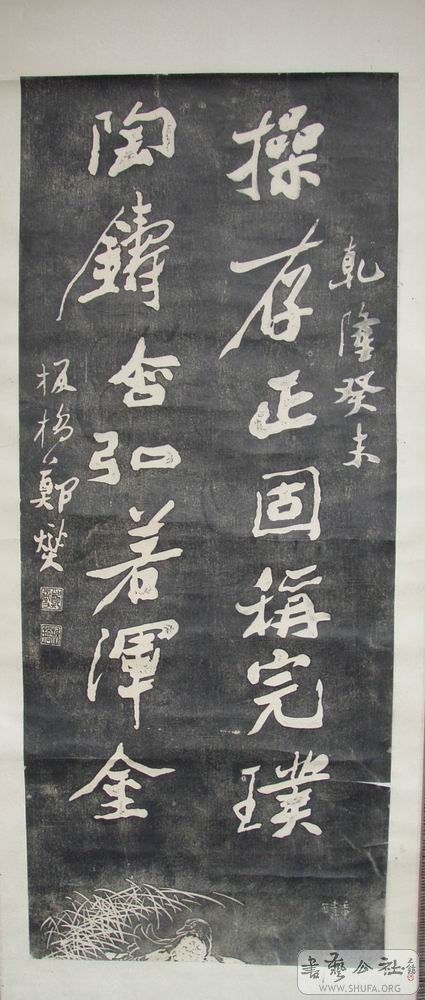 乾隆癸未
操存正固稱完璞
陶鑄含弘若渾金
板橋鄭燮
書藝公社
WWW.SHUFA.ORG